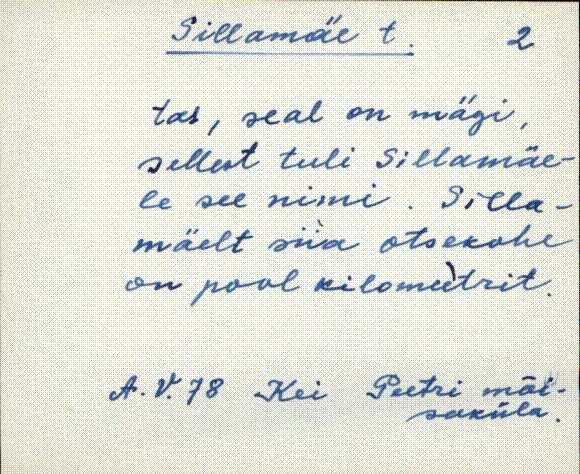 Sillamäe t. 2
tas, seal on mägi,
sellest tuli Sillamäe-
le see nimi. Silla-
mäelt siia otsekohe
on pool kilomeetrit.
A. V. 78 Kei Peetri mõi-
saküla.